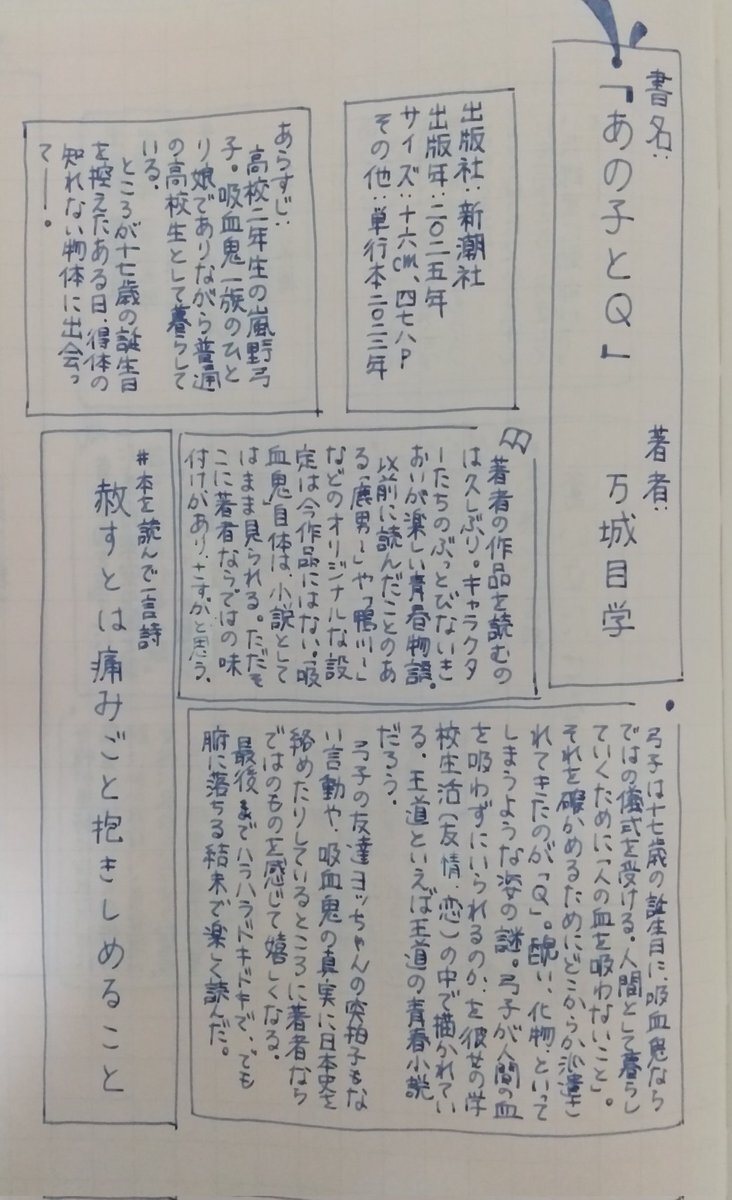 書名:
「あの子とQ」
著者:
万城目学
出版社:新潮社
出版年:二〇二五年
サイズ:十六cm、四七八P
その他:単行本二〇二二年
あらすじ:
高校二年生の嵐野弓
子。吸血鬼一族のひと
り娘でありながら普通
の高校生として暮らして
いる。
ところが十七歳の誕生日
を控えたある日、得体の
知れない物体に出会っ
て―。
著者の作品を読むの
は久しぶり。キャラクタ
ーたちのぶっとびないき
おいが楽しい青春物語。
以前に読んだことのあ
る「鹿男〜」やっ鴨川〜」
などのオリジナルな設
定は今作品にはない。吸
血鬼」自体は、小説として
はまま見られる。ただそ
こに著者ならではの味
付けがあり、さすがと思う。
弓子は十七歳の誕生日に、吸血鬼なら
ではの儀式を受ける。人間として暮らし
ていくために「人の血を吸わないこと」。
それを確かめるためにどこからか派遣さ
れてきたのが「Q」。醜い、化物、といって
しまうような姿の謎。弓子が人間の血
を吸わずにいられるのか、を彼女の学
校生活(友情、恋)の中で描かれてい
る。王道といえば王道の青春小説
だろう。
弓子の友達ヨッちゃんの突拍子もな
い言動や、吸血鬼の真実に日本史を
絡めたりしているところに著者なら
ではのものを感じて嬉しくなる。
最後までハラハラドキドキで、でも
腑に落ちる結末で楽しく読んだ。
#本を読んで一言詩
赦すとは痛みごと抱きしめること